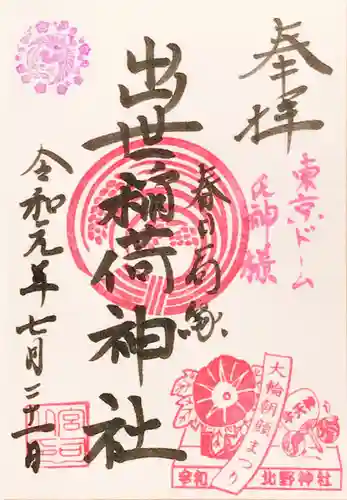 奉拝
東京ドーム
氏神様
春日局縁
出世稲荷神社
令和元年七月二十一日
大輪朝顔まつり
牛天神
令和
北野神社
宮司